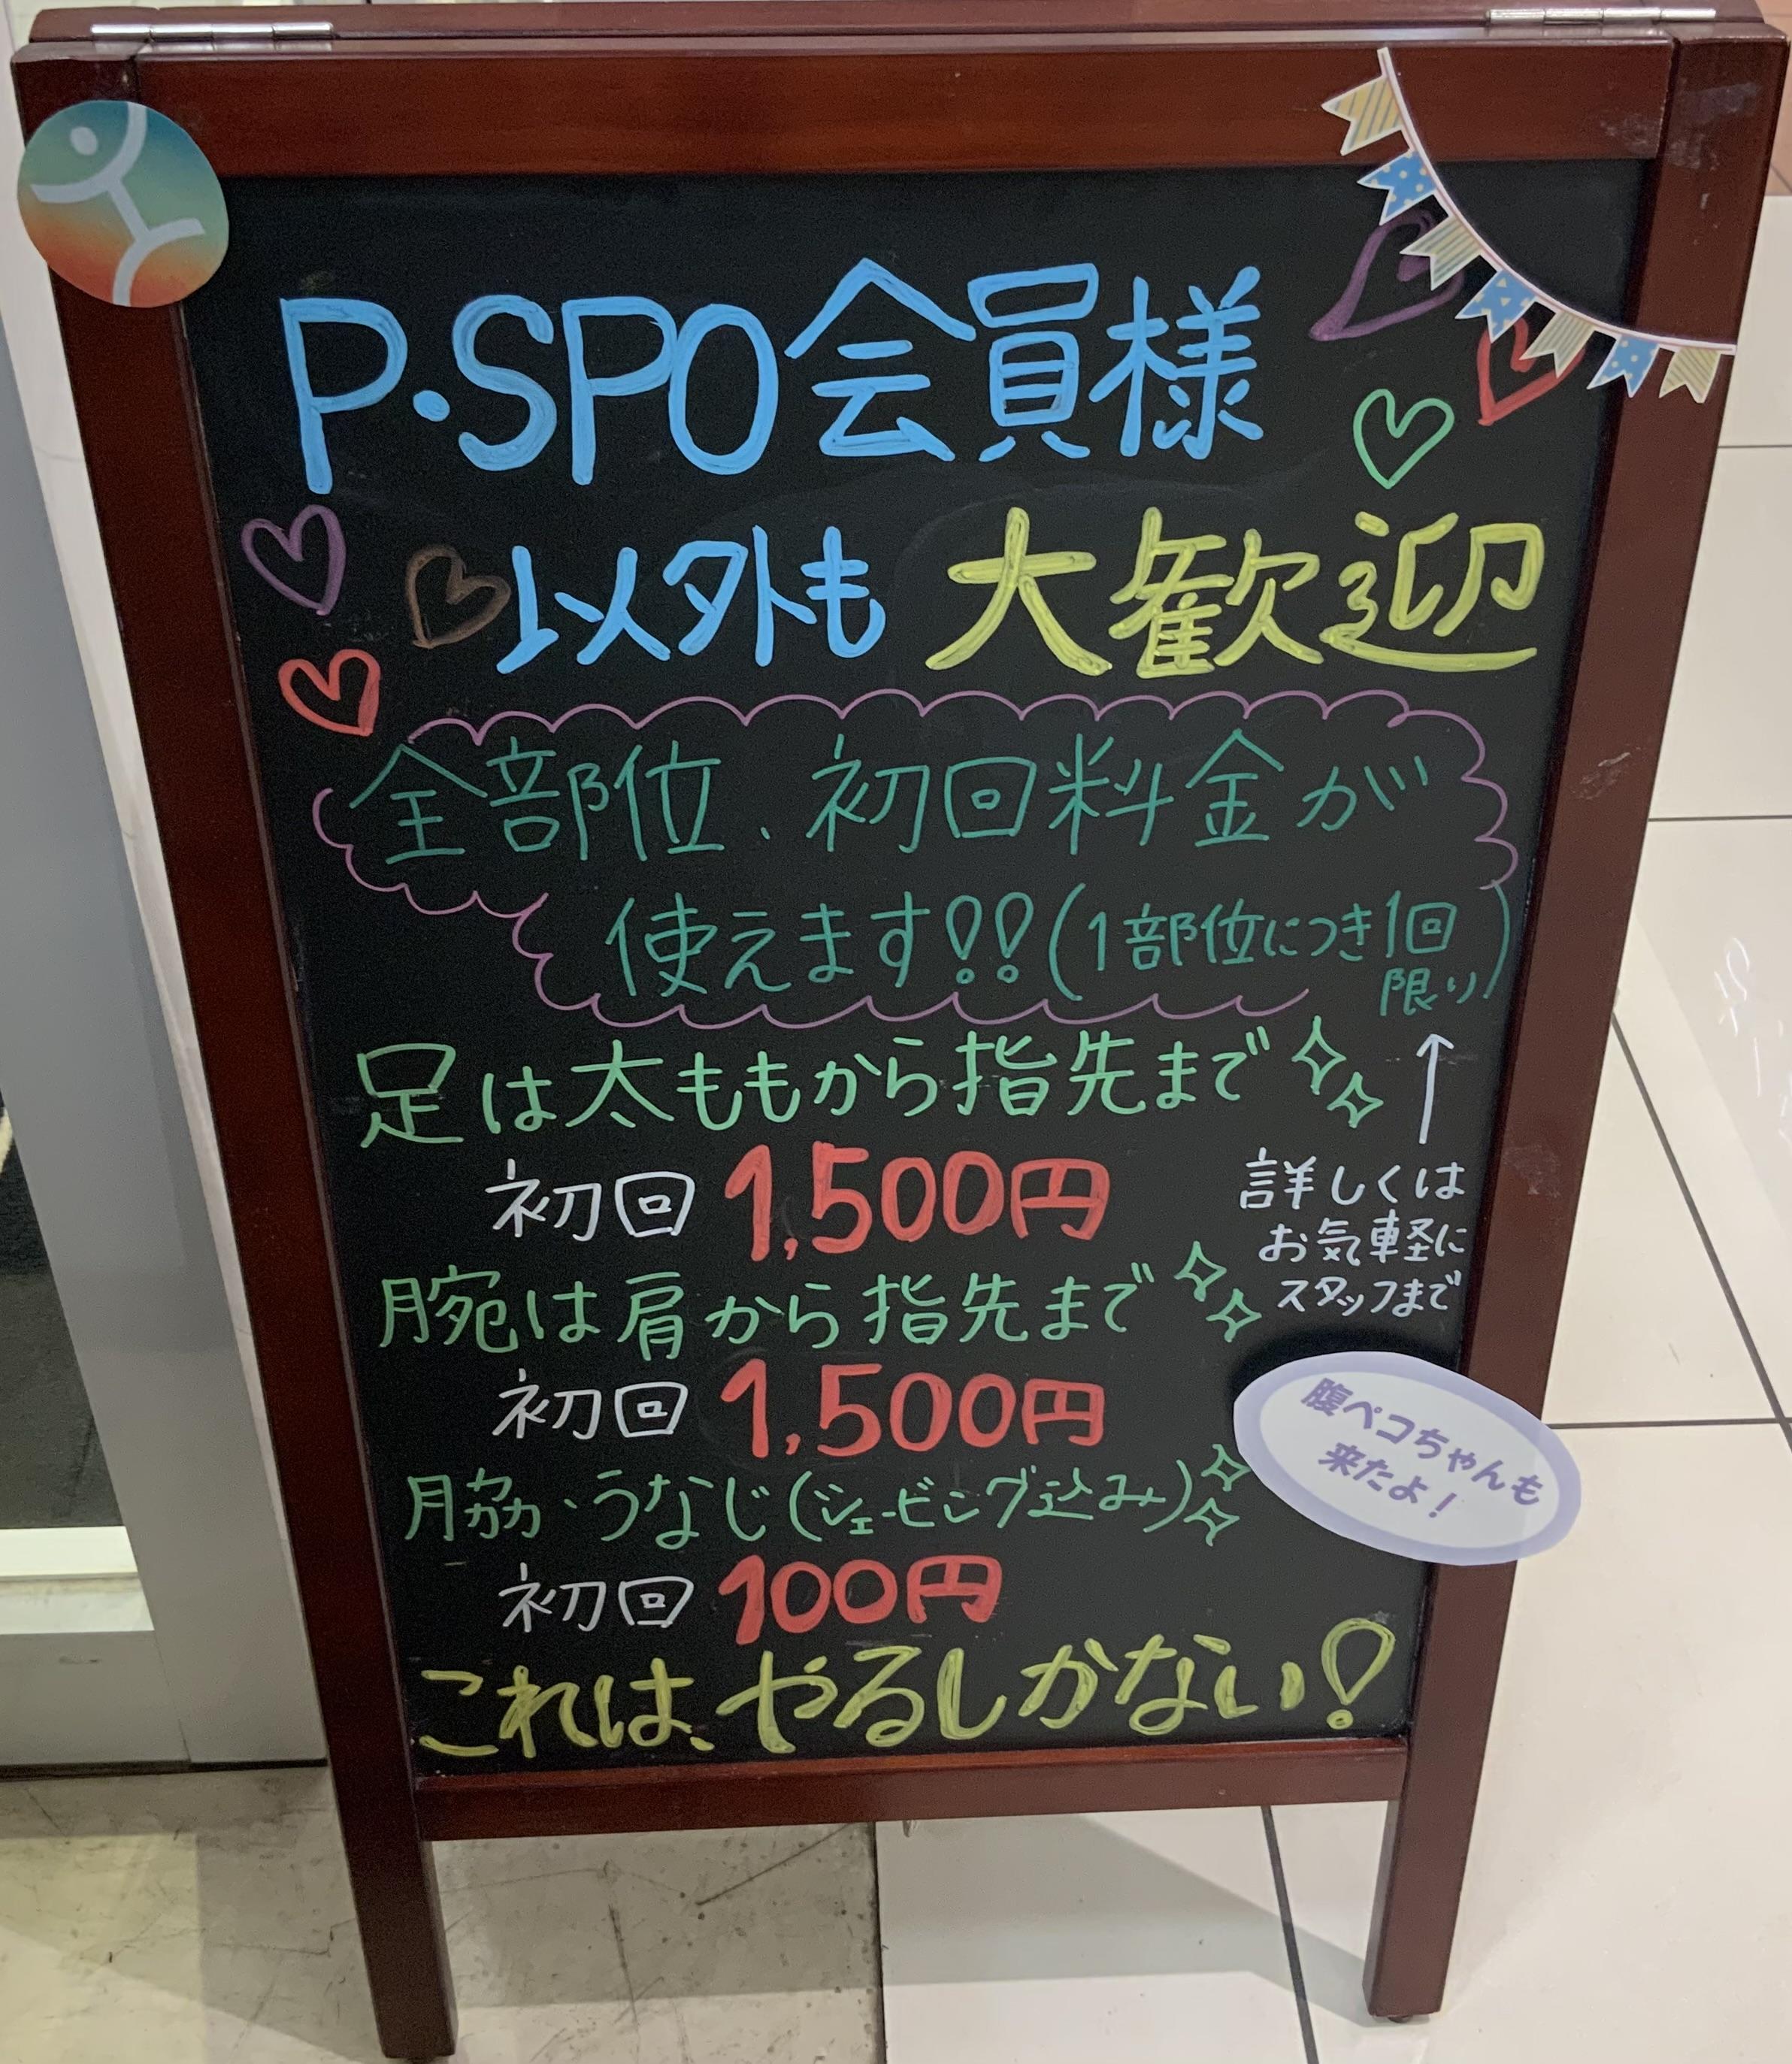 P・SPO会員様
以外も 大歓迎
全部位、初回料金が
使えます!!(1部位につき1回
限り)
足は太ももから指先まで
初回 1,500円
詳しくは
お気軽に
スタッフまで
腕は肩から指先まで
初回 1,500円
腹ペコちゃんも
来たよ!
脇・うなじ(シェービング込み)
初回 100円
これは、やるしかない!